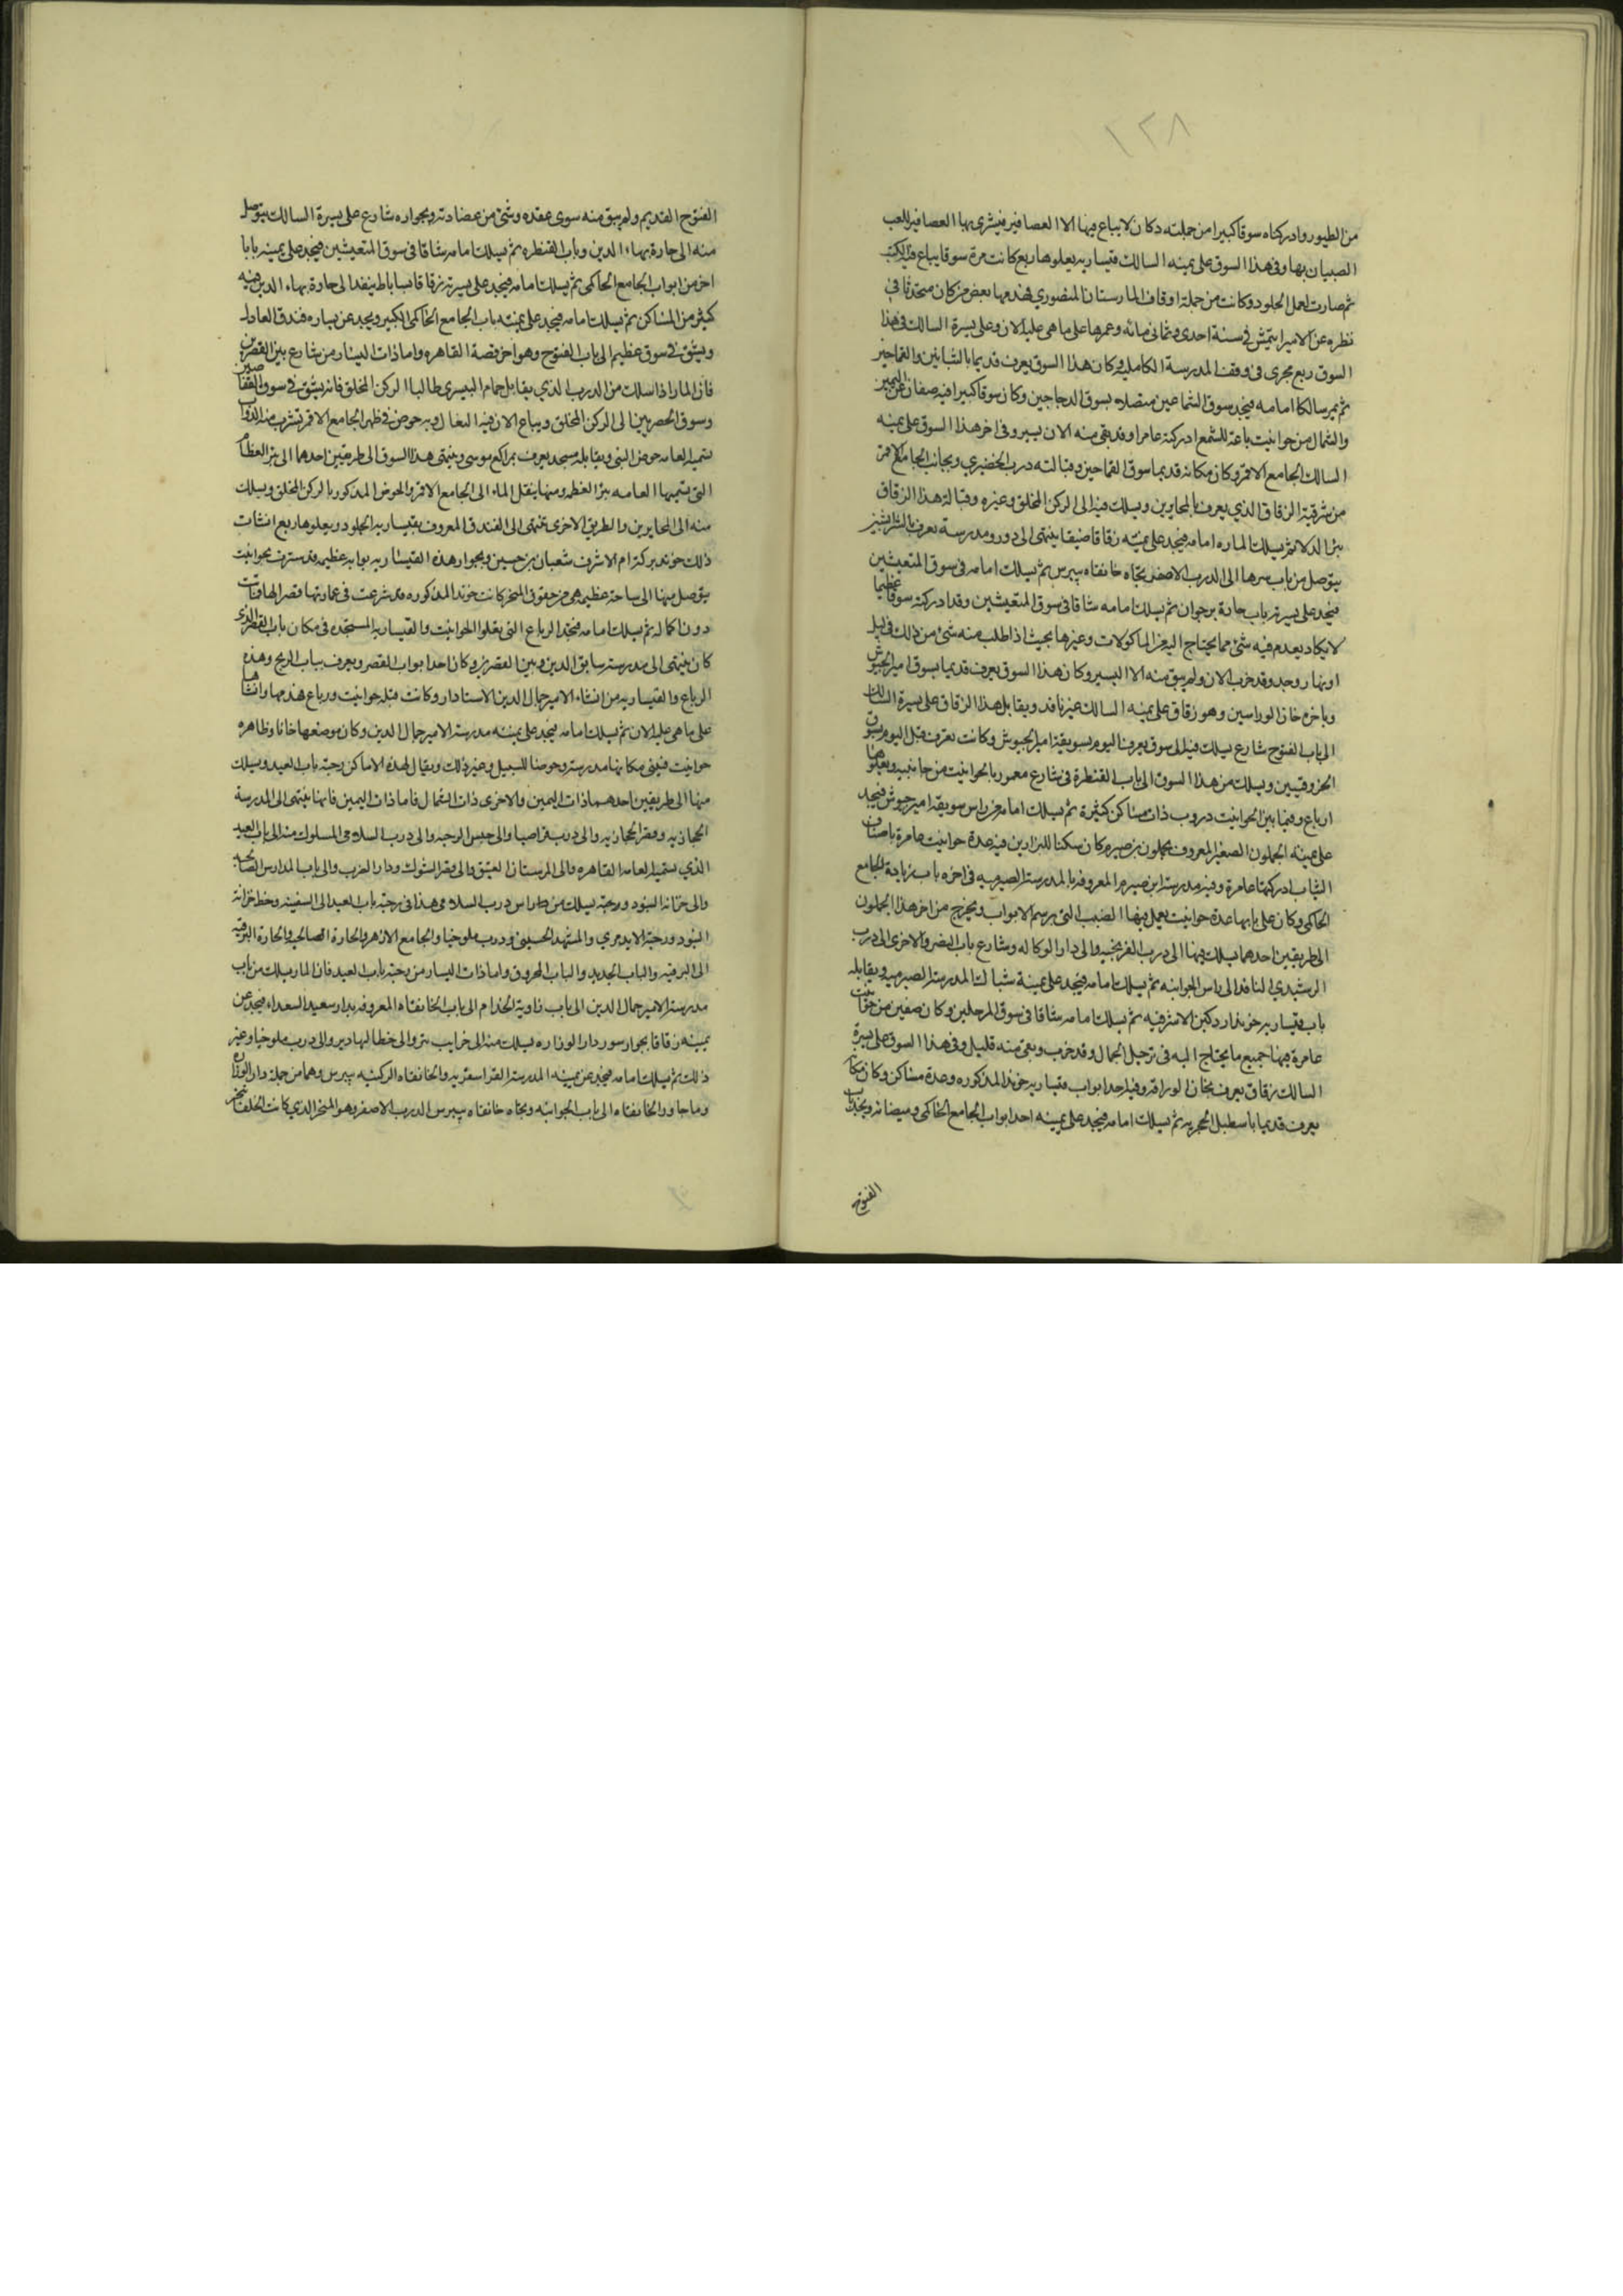 ١٢٨
من الطيور وادركناه سوقا كبيرا من جملته دكان لا يباع فيها الا العصافير فيشرى بها العصافير للعب
الصبيان بها وفى هذا السوق على يمنه السالك قيساريه يعلوها ربع كانت مرة سوقا يباع فيه الكتب
ثم صارت لعمل الجلود وكانت من جملة اوقاف المارستان المنصوري فهدمها بعض من كان متحدثا في
نظره عن الامير ايتمش في سنة احدى وثمانى مائه وعمرها على ما هى عليه الان وعلى يسرة السالك فى هذا
السوق ربع مجرى فى وقف المدرسة الكاملية وكان هذا السوق يعرف قديما بالتبانين والقماحين
ثم يمر سالكا امامه فيجد سوق الشماعين متصلا بسوق الدجاجين وكان سوقا كبيرا فيه صفان عن اليمين
والشمال من حوانيت باعة الشمع ادركته عامرا وقد بقى منه الان يسير وفى اخر هذا السوق على يمنه
السالك الجامع الاقمر وكان مكانه قديما سوق القماحين وقبالته درب الخضيري وبجانب الجامع الاقمر
من شرقية الزقاق الذي يعرف بالمحايرين ويسلك فيه الى الركن المخلق وغيره وقبالة هذا الزقاق
بئر الدلا ثم يسلك الماره امامه فيجد على يمنته زقاقا ضيقا ينتهى الى دور ومدرسة تعرف بالشرابشيه
يتوصل من باب سرها الى الدرب الاصفر تجاه خانقاه بيبرس ثم يسلك امامه فى سوق المتعيشين
فيجد على يسرته باب حارة برجوان ثم يسلك امامه شاقا فى سوق المتعيشين وقد ادركته سوقا عظيما
لا يكاد يعدم فيه شئ مما يحتاج اليه من الماكولات وغيرها بحيث اذا طلب منه شئ من ذلك فى ليل
او نهار وجد وقد خرب الان ولم يبق منه الا اليسير وكان هذا السوق يعرف قديما بسوق امير الجيوش
وباخره خان الرواسين وهو زقاق على يمنه السالك غير نافد ويقابل هذا الزقاق على يسرة السالك
الى باب الفتوح شارع يسلك فيه الى سوق يعرف اليوم بسويقة امير الجيوش وكانت تعرف قبل اليوم بسوق
الخروقيين ويسلك من هذا السوق الى باب القنطرة فى شارع معمور بالحوانيت من جانبيه ويعلوها
ارباع وفيما بين الحوانيت دروب ذات مساكن كثيرة ثم يسلك امامه من راس سويقة امير جيوش فيجد
على يمينه الجملون الصغير المعروف بجملون بن صيرم وكان سكنا للبزازين فيه عدة حوانيت عامرة باصناف
الثياب ادركتها عامرة وفيه مدرسة ابن صيرم المعروفه بالمدرسة الصيرميه فى اخره باب زيادة الجامع
الحاكمى وكان على بابها عدة حوانيت يعمل فيها الضبب التى برسم الابواب ويخرج من اخر هذا الجملون
الى طريقين احدهما يسلك فيها الى درب الفرنجيه والى دار الوكاله وشارع باب النصر والاخرى الى درب
الرشيدي النافد الى باس الجوانيه ثم يسلك امامه فيجد على يمينة شباك المدرسة الصيرميه ويقابله
باب قيساريه خوند اردكين الاشرفيه ثم يسلك امامه شاقا فى سوق المرحلين وكان صفين من حوانيت
عامرة فيها جميع ما يحتاج اليه فى ترحيل الجمال وقد خرب وبقى منه قليل وفى هذا السوق على يسرة
السالك زقاق يعرف بخان الوراقه وفيه احد ابواب قيساريه خوند المذكوره وعدة مساكن وكان مكانه
يعرف قديما باسطبل الحجريه ثم يسلك امامه فيجد على يمينه احد ابواب الجامع الحاكمى وميضاته ويجد باب
الفتوح
الفتوح القديم ولم يبق منه سوى عقده وشئ من عضادته وبجواره شارع على يسرة السالك يتوصل
منه الى حارة بهاء الدين وباب القنطره ثم يسلك امامه شاقا فى سوق المتعيشين فيجد على يمينه بابا
اخر من ابواب الجامع الحاكمى ثم يسلك امامه فيجد على يسرته زقاقا بساباط ينفد الى حارة بهاء الدين فيه
كثير من المساكن ثم يسلك امامه فيجد على يمينه باب الجامع الحاكمى الكبير ويجد عن يساره فندق العادل
ويشق في سوق عظيم الى باب الفتوح وهو اخر قصبة القاهره واما ذات اليسار من شارع بين القصرين
فان المار اذا سلك من الدرب الذي يقابل حمام البيسرى طالبا الركن المخلق فانه يشق في سوق القفاصين
وسوق الحصريين الى الركن المخلق ويباع الان فيه النعال وبه حوض في ظهر الجامع الاقمر تشرب منه الدواب
تسميه العامه حوض النبى ويقابله مسجد يعرف بمراكع موسى وينتهى هذا السوق الى طريقين احدهما الى بئر العظام
التى تسميها العامه بئر العظمه ومنها ينقل الماء الى الجامع الاقمر والحوض المذكور بالركن المخلق ويسلك
منه الى المحايرين والطريق الاخرى تنتهى الى الفندق المعروف بقيساريه الجلود ويعلوها ربع انشات
ذلك خوند بركة ام الاشرف شعبان بن حسين وبجوار هذه القيساريه بوابه عظيمه قد سترت بحوانيت
يتوصل منها الى ساحة عظيمه هى من حقوق المنحر كانت خوند المذكوره قد شرعت فى عمارتها قصرا لها فماتت
دون اكماله ثم يسلك امامه فيجد الرباع التى يعلوا الحوانيت والقيساريه المستجده فى مكان باب القصر الذي
كان ينتهى الى مدرسة سابق الدين وبين القصرين وكان احد ابواب القصر ويعرف بباب الريح وهذه
الرباع والقيساريه من انشاء الامير جمال الدين الاستادار وكانت قبله حوانيت ورباع فهدمها وانشاها
على ما هى عليه الان ثم يسلك امامه فيجد على يمينه مدرسة الامير جمال الدين وكان موضعها خانا وظاهره
حوانيت فبنى مكانها مدرسته وحوضا للسبيل وغير ذلك ويقال لهذه الاماكن رحبة باب العيد ويسلك
منها الى طريقين احدهما ذات اليمين والاخرى ذات الشمال فاما ذات اليمين فانها تنتهى الى المدرسة
الحجازيه وقصر الحجازيه والى درب قراصيا والى حبس الرحبه والى درب السلامى المسلوك منه الى باب العيد
الذي تسميه العامه القاهره والى المرستان العتيق والى قصر الشوك ودار الضرب والى باب المدارس الصالحيه
والى خزانة البنود ورحبه يسلك من راس درب السلامى هذا فى رحبة باب العيد الى السفينه وخط خزانة
البنود ورحبة الايدمري والمشهد الحسينى ودرب ملوخيا والجامع الازهر والحارة الصالحيه والحارة البرقيه
الى البرقيه والباب الجديد والباب المحروق واما ذات اليسار من رحبة باب العيد فان المار يسلك من باب
مدرسة الامير جمال الدين الى باب زاوية الخدام الى باب الخانقاه المعروفه بدار سعيد السعداء فيجد عن
يمينه زقاقا بجوار سور دار الوزاره يسلك منه الى خرايب تتر والى خط الهادير والى درب ملوخيا وغير
ذلك ثم يسلك امامه فيجد عن يمينه المدرسة القراسنقريه والخانقاه الركنيه بيبرس وهما من جملة دار الوزاره
وما جاور الخانقاه الى باب الجوانيه وتجاه خانقاه بيبرس الدرب الاصفر وهو المنحر الذي كانت الخلفا تنحر